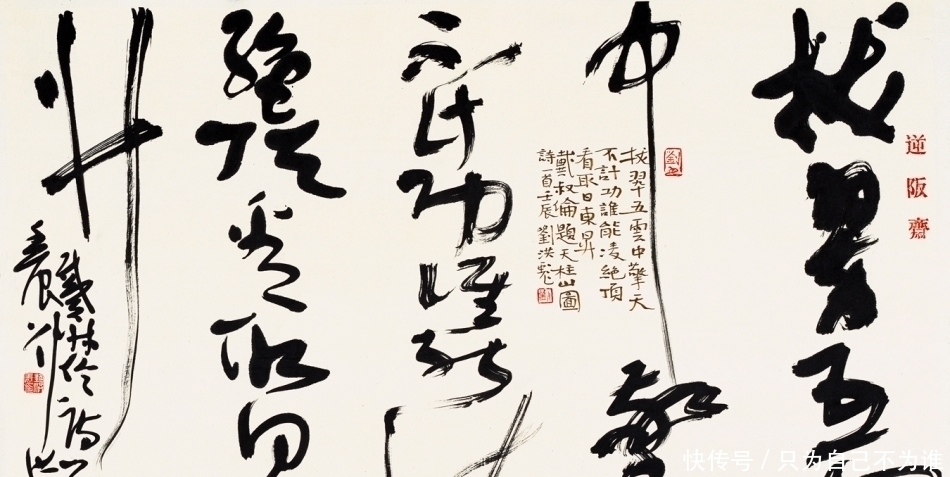 逆阪齋
拔翠五
中擎
拔翠五雲中擎天
不計功誰能凌絕頂
看取日東昇
戴叔倫題天柱山圖
詩一首壬辰劉洪彪
不計功誰能
絕頂看取日
升
戴叔倫詩
壬辰劉
快传号 / 只为自己不为谁